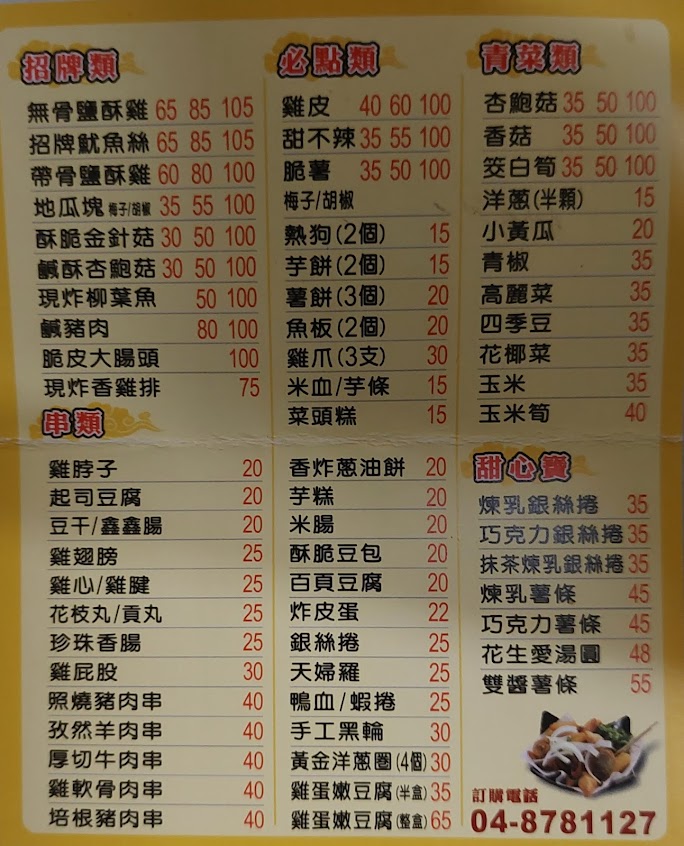 招牌類
無骨鹽酥雞 65 85 105
招牌魷魚絲 65 85 105
帶骨鹽酥雞 60 80 100
地瓜塊 梅子/胡椒 35 55 100
酥脆金針菇 30 50 100
鹹酥杏鮑菇 30 50 100
現炸柳葉魚 50 100
鹹豬肉 80 100
脆皮大腸頭 100
現炸香雞排 75
串類
雞脖子 20
起司豆腐 20
豆干/鑫鑫腸 20
雞翅膀 25
雞心/雞腱 25
花枝丸/貢丸 25
珍珠香腸 25
雞屁股 30
照燒豬肉串 40
孜然羊肉串 40
厚切牛肉串 40
雞軟骨肉串 40
培根豬肉串 40
必點類
雞皮 40 60 100
甜不辣 35 55 100
脆薯 35 50 100
梅子/胡椒
熱狗(2個) 15
芋餅(2個) 15
薯餅(3個) 20
魚板(2個) 20
雞爪(3支) 30
米血/芋條 15
菜頭糕 15
香炸蔥油餅 20
芋糕 20
米腸 20
酥脆豆包 20
百頁豆腐 20
炸皮蛋 22
銀絲捲 25
天婦羅 25
鴨血/蝦捲 25
手工黑輪 30
黃金洋蔥圈(4個) 30
雞蛋嫩豆腐(半盒) 35
雞蛋嫩豆腐(整盒) 65
青菜類
杏鮑菇 35 50 100
香菇 35 50 100
筊白筍 35 50 100
洋蔥(半顆) 15
小黃瓜 20
青椒 35
高麗菜 35
四季豆 35
花椰菜 35
玉米 35
玉米筍 40
甜心寶
煉乳銀絲捲 35
巧克力銀絲捲 35
抹茶煉乳銀絲捲 35
煉乳薯條 45
巧克力薯條 45
花生愛湯圓 48
雙醬薯條 55
訂購電話
04-8781127